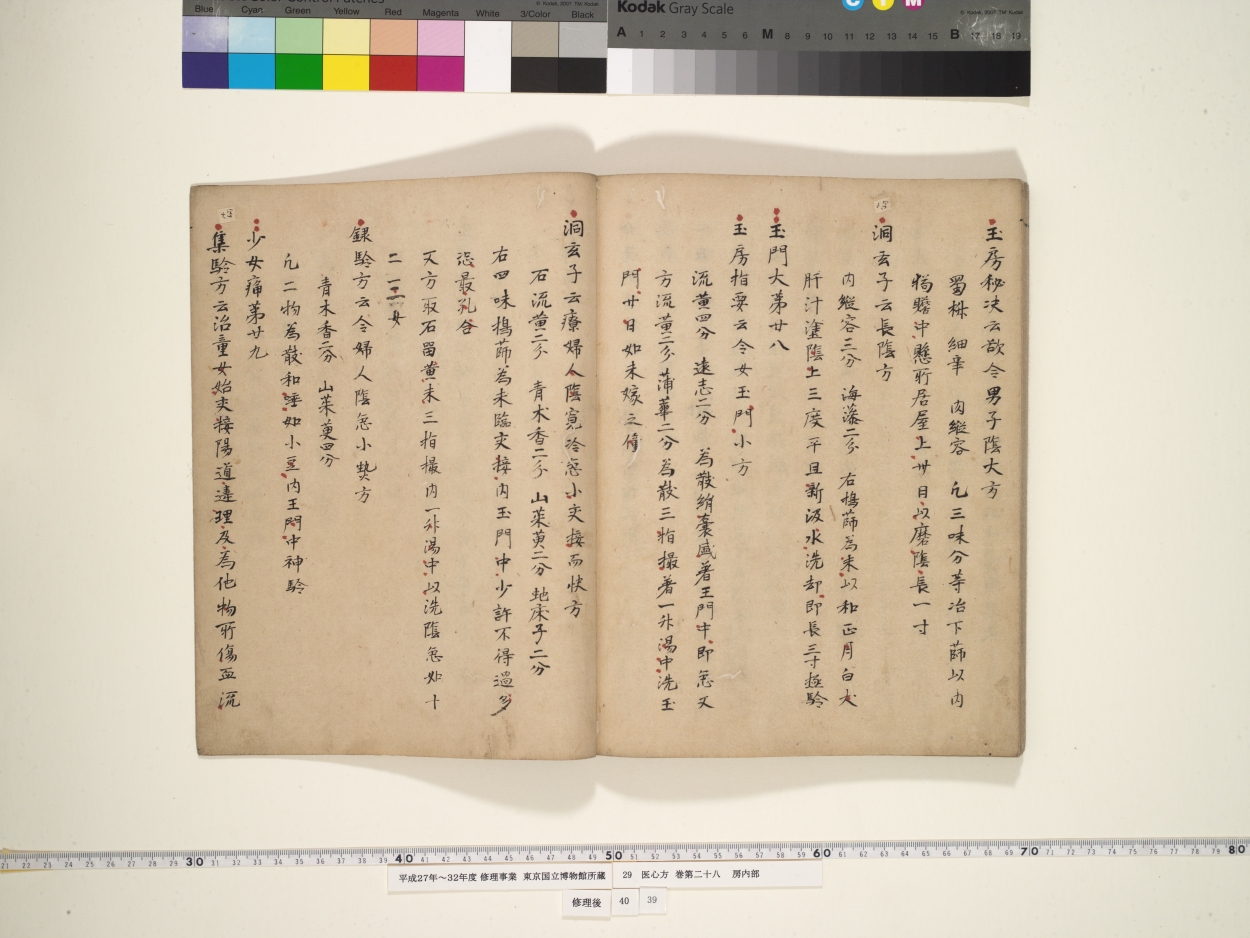 Blue Cyan Green Yellow Red Magenta White 3/Color Black
Kodak Gray Scale
C Y M
A 1 2 3 4 5 6 M 8 9 10 11 12 13 14 15 B 17 18 19
玉房秘决云欲令男子陰大方
蜀椒 細辛 肉縱容 凢三味分等冶下篩以内
狗膽中懸所居屋上卅日以磨陰長一寸
洞玄子云長陰方
肉縱容三分 海藻二分 右擣篩為末以和正月白犬
肝汁塗陰上三度平旦新汲水洗却即長三寸極驗
玉門大第廿八
玉房指要云令女玉門小方
流黄四分 遠志二分 為散絹囊盛著玉門中即急又
方流黄二分蒲華二分為散三指撮著一升湯中洗玉
門廿日如未嫁之僮
洞玄子云療婦人陰寛冷急小交接而快方
石流黄二分 青木香二分 山茱萸二分 虵床子二分
右四味擣篩為末臨交接内玉門中少許不得過多
恐最孔合
又方取石留黄末三指撮内一升湯中以洗陰急如十
二三女
録驗方云令婦人陰急小熱方
青木香二分 山茱萸四分
凢二物為散和唾如小豆内玉門中神驗
少女痛第廿九
集驗方云治童女始交接陽道違理及為他物所傷血流
30 40 50 60 70 80
平成27年~32年度 修理事業 東京国立博物館所蔵 29 医心方 巻第二十八 房内部
修理後 40 39